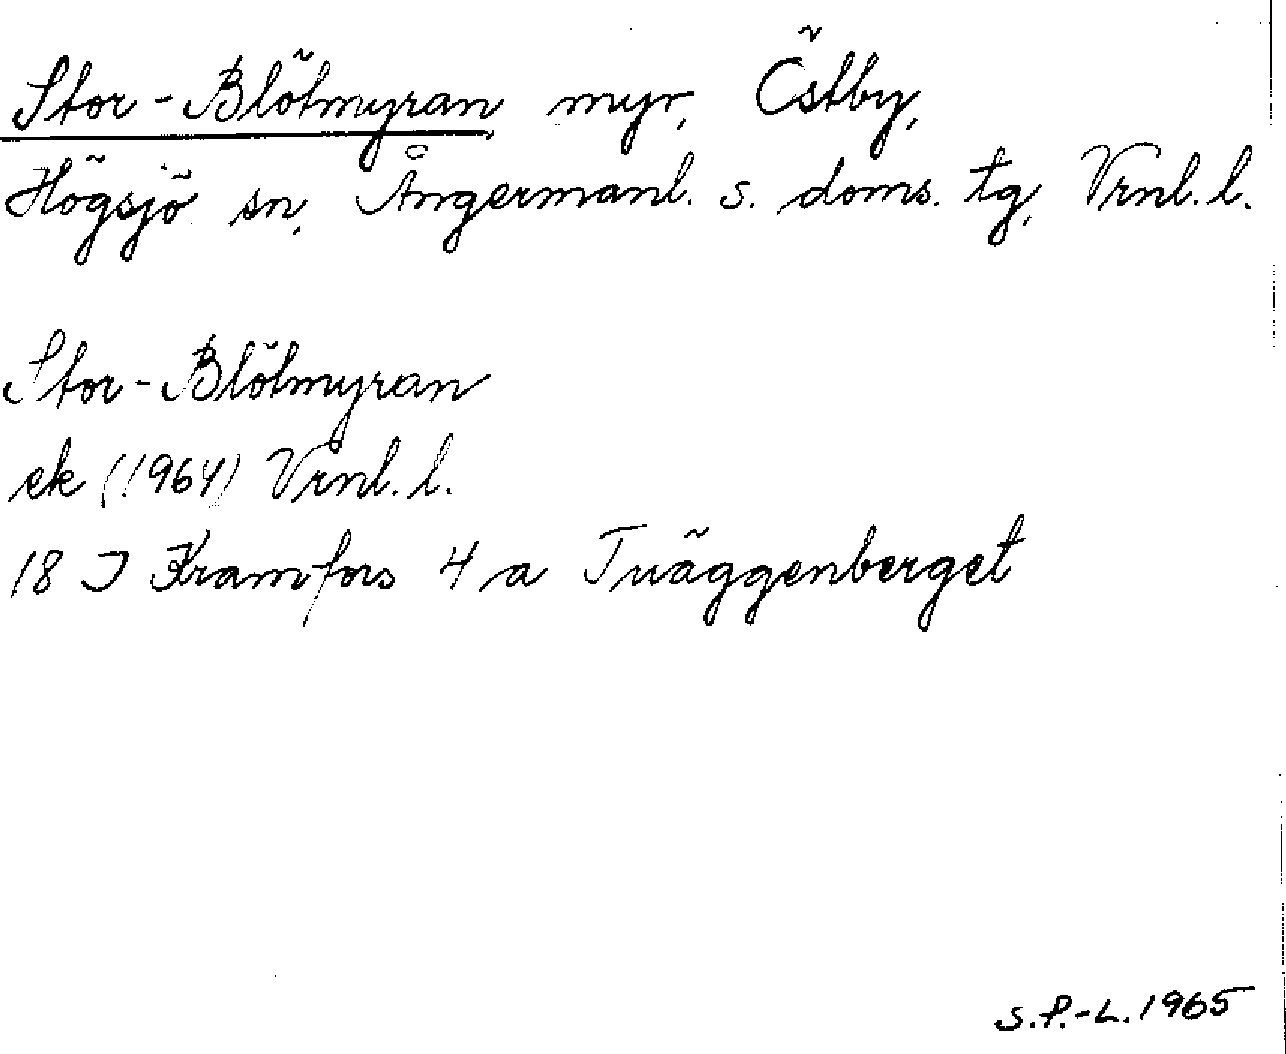 Stor-Blötmyran myr, Östby,
Högsjö sn, Ångermanl. s. doms. tg, Vrnl. l.
Stor-Blötmyran
ek (1964) Vrnl. l.
18 I Kramfors 4 a Tväggenberget
S.P.-L. 1965